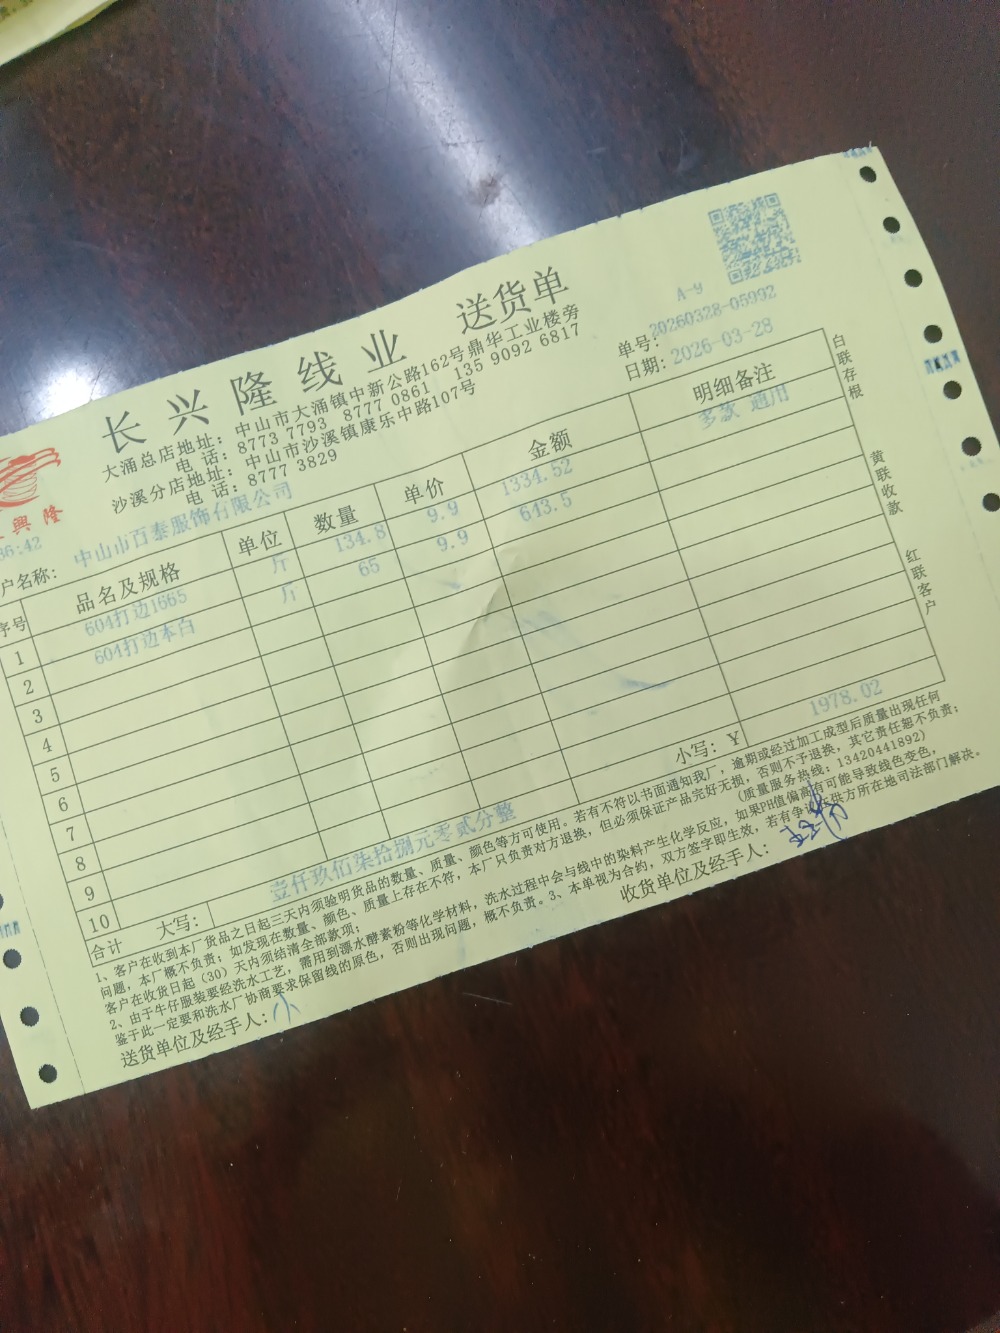 长兴隆线业 送货单
A-9
单号:20260328-05992
日期:2026-03-28
大涌总店地址:中山市大涌镇中新公路162号鼎华工业楼旁
电 话:8773 7793 8777 0861 135 9092 6817
沙溪分店地址:中山市沙溪镇康乐中路107号
电 话:8777 3829
興隆
36:42
户名称: 中山市百泰服饰有限公司
序号 品名及规格 单位 数量 单价 金额 明细备注
1 604打边1665 斤 134.8 9.9 1334.52 多款 通用
2 604打边本白 斤 65 9.9 643.5
3
4
5
6
7
8
9
10
合计 大写: 壹仟玖佰柒拾捌元零贰分整 小写: ¥ 1978.02
1、客户在收到本厂货品之日起三天内须验明货品的数量、质量、颜色等方可使用。若有不符以书面通知我厂,逾期或经过加工成型后质量出现任何
问题,本厂概不负责;如发现在数量、颜色、质量上存在不符,本厂只负责对方退换,但必须保证产品完好无损,否则不予退换,其它责任恕不负责;
客户在收货日起(30)天内须结清全部款项; (质量服务热线:13420441892)
2、由于牛仔服装要经洗水工艺,需用到漂水酵素粉等化学材料,洗水过程中会与线中的染料产生化学反应,如果PH值偏高有可能导致线色变色,
鉴于此一定要和洗水厂协商要求保留线的原色,否则出现问题,概不负责。3、本单视为合约,双方签字即生效,若有争议由供方所在地司法部门解决。
送货单位及经手人: 小
收货单位及经手人:
白联存根
黄联收款
红联客户